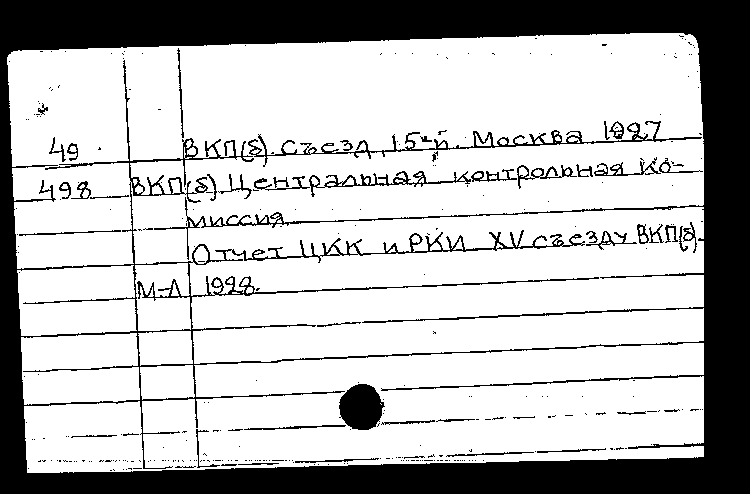 49 ВКП(б). Съезд, 15-й. Москва 1927
498 ВКП(б). Центральная контрольная ко-
миссия.
Отчет ЦКК и РКИ XV съезду ВКП(б).
М-Л 1928.